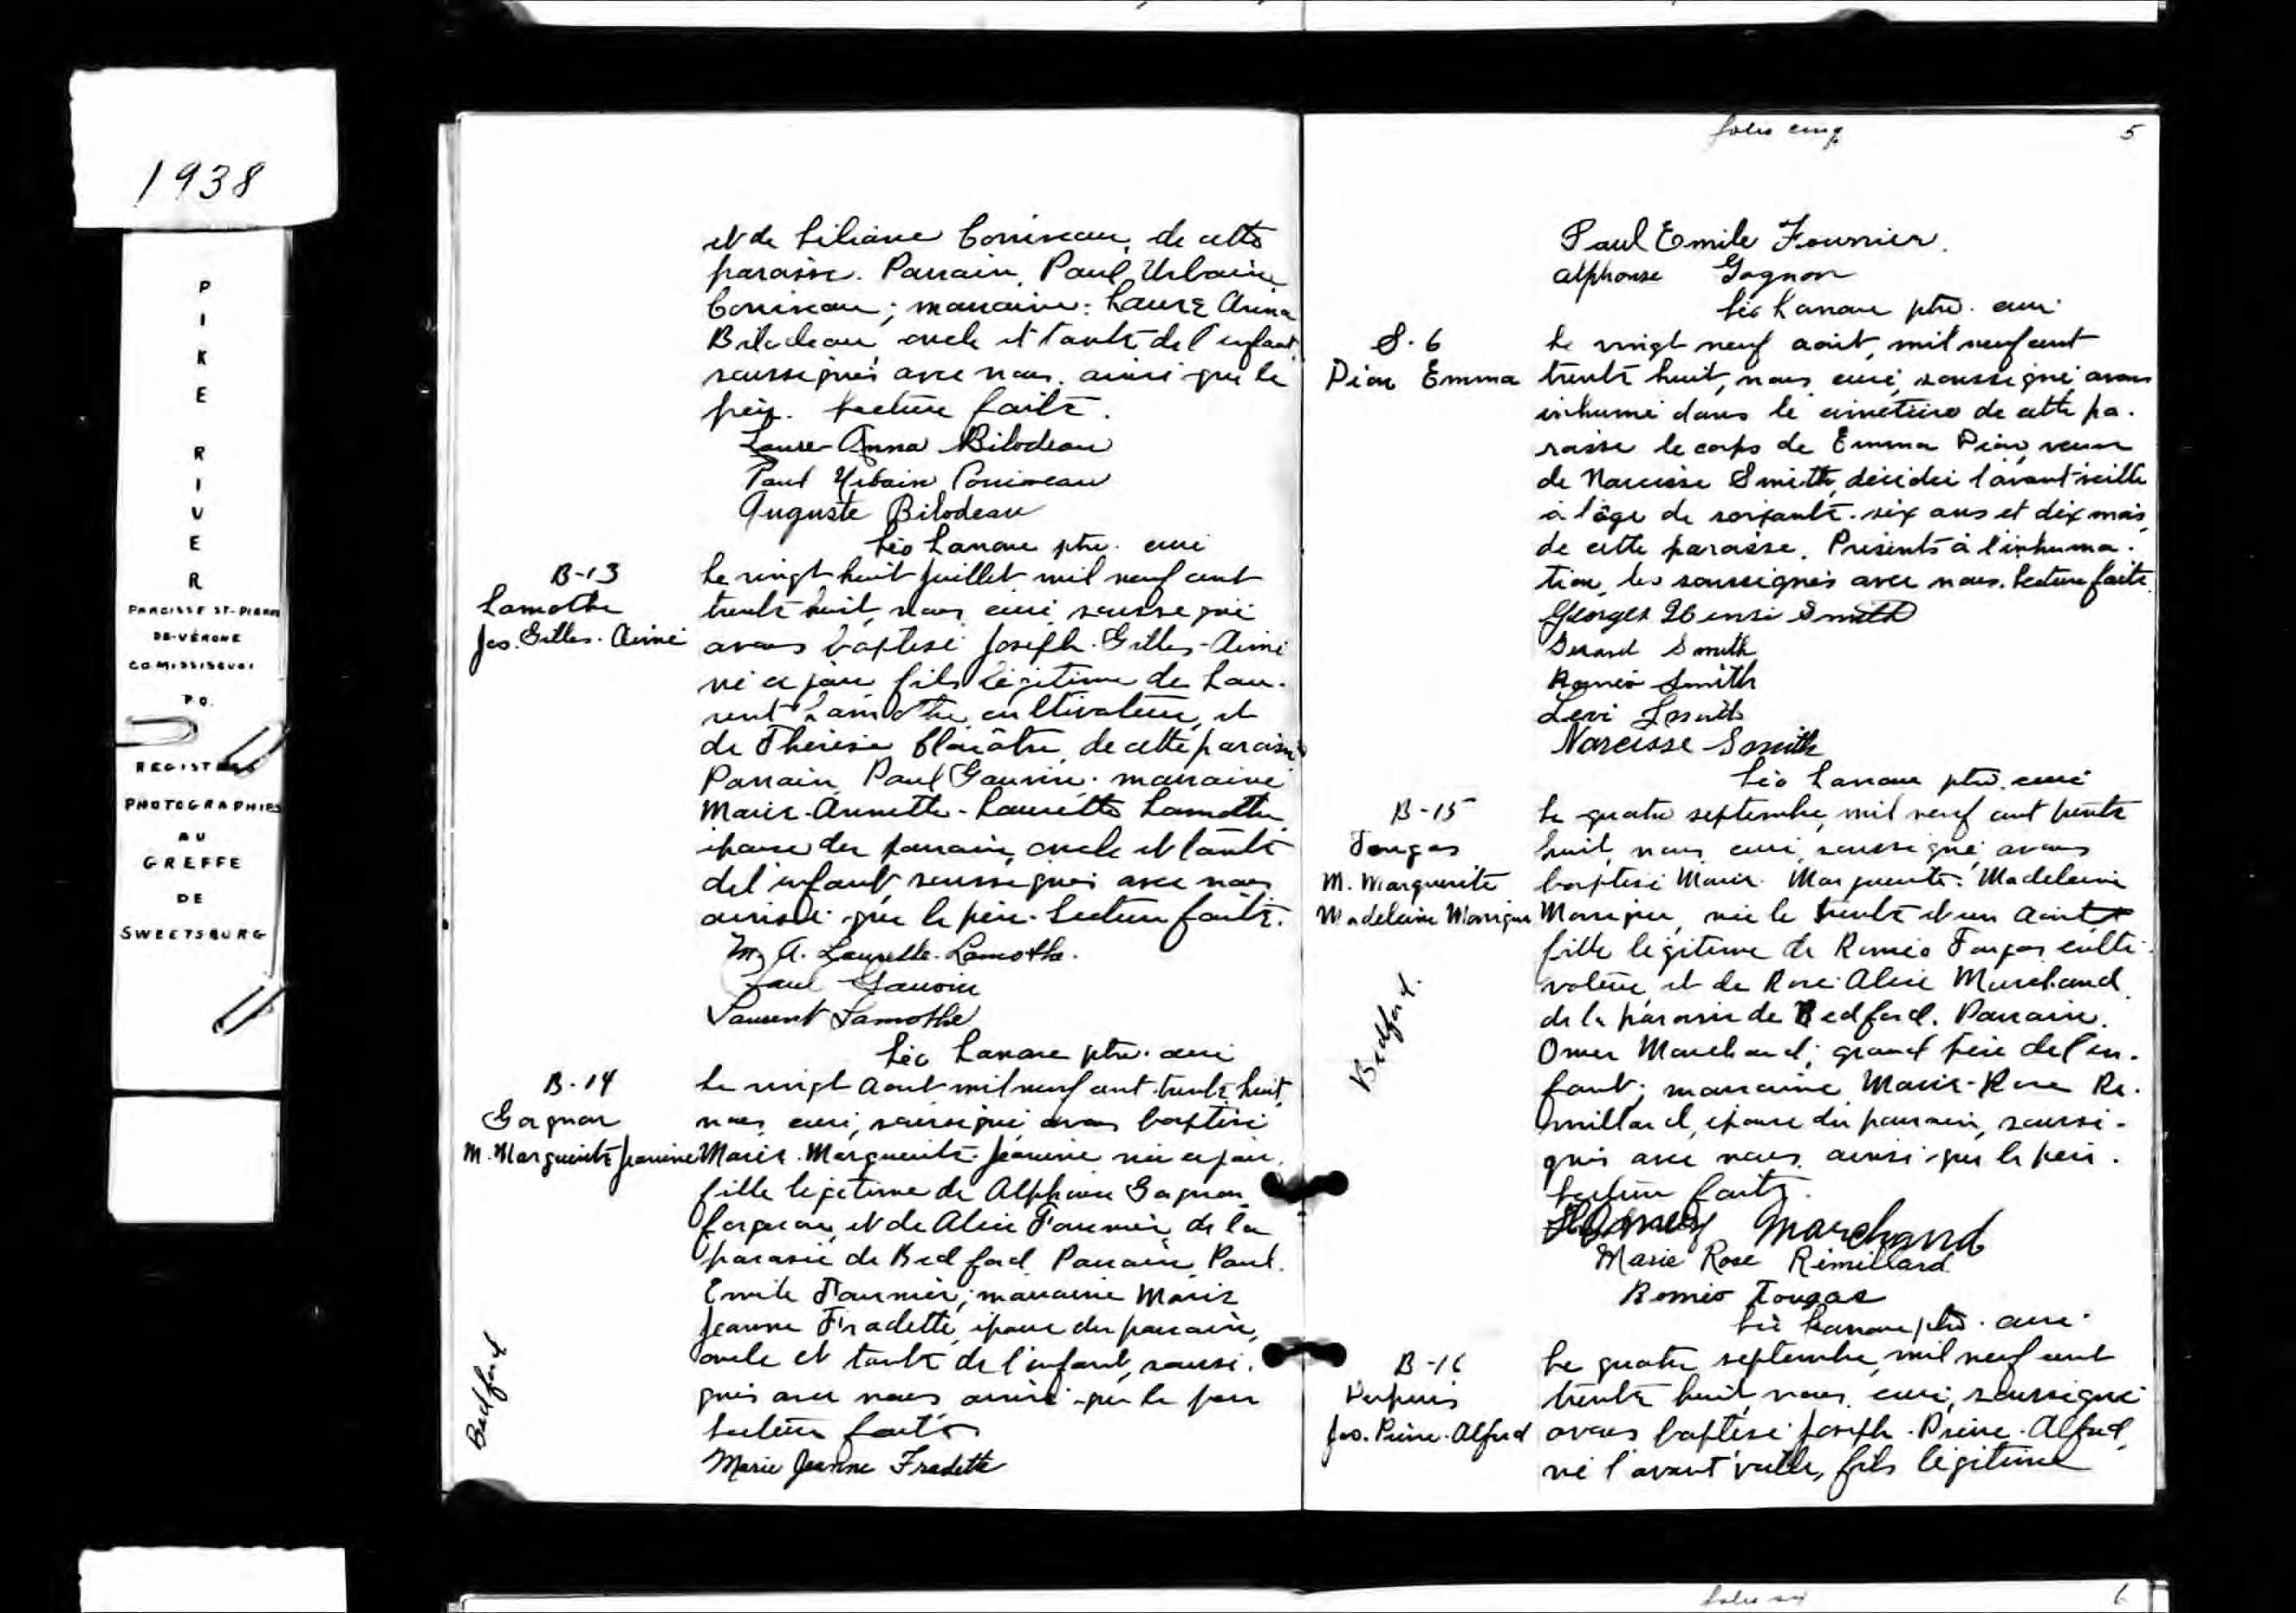 1938
P
I
K
E
R
I
V
E
R
PAROISSE ST-PIERRE
DE-VÉRONE
CO. MISSISQUOI
P.Q.
REGISTRES
PHOTOGRAPHIÉS
AU
GREFFE
DE
SWEETSBURG
et de Liliane Corriveau, de cette
paroisse. Parrain, Paul Urbain
Corriveau; marraine: Laure Anna
Bilodeau, oncle et tante de l'enfant,
soussignés avec nous ainsi que le
père. Lecture faite.
Laure-Anna Bilodeau
Paul Urbain Corriveau
Auguste Bilodeau
Léo Lanoue ptre. curé
B-13
Lamothe
Jos. Gilles-Aimé
Le vingt huit juillet mil neuf cent
trente huit, nous curé soussigné
avons baptisé Joseph-Gilles-Aimé
né ce jour fils légitime de Lau-
rent Lamothe, cultivateur, et
de Thérèse Claröatre, de cette paroisse
Parrain Paul Gauvin; marraine
Marie-Annette-Laurette Lamothe
épouse du parrain, oncle et tante
de l'enfant soussignés avec nous
ainsi que le père. Lecture faite.
M. A. Laurette Lamothe.
Paul Gauvin
Laurent Lamothe
Léo Lanoue ptre. curé
B-14
Gagnon
M. Marguerite Jeanine
Bedford
Le vingt août mil neuf cent trente huit,
nous, curé, soussigné avons baptisé
Marie-Marguerite-Jeanine née ce jour,
fille légitime de Alphonse Gagnon
forgeron, et de Alice Fournier, de la
paroisse de Bedford. Parrain, Paul
Emile Fournier; marraine Marie
Jeanne Fradette, épouse du parrain,
oncle et tante de l'enfant, soussi-
gnés avec nous ainsi que le père
Lecture faite
Marie Jeanne Fradette
folio cinq
5
Paul Emile Fournier.
Alphonse Gagnon
Léo Lanoue ptre. curé
S-6
Dion Emma
Le vingt neuf août, mil neuf cent
trente huit, nous, curé, soussigné, avons
inhumé dans le cimetière de cette pa-
roisse le corps de Emma Dion, veuve
de Narcisse Smith, décédée l'avant veille
à l'âge de soixante-six ans et dix mois,
de cette paroisse. Présents à l'inhuma-
tion, les soussignés avec nous. Lecture faite.
Georges Henri Smith
Gerard Smith
Roméo Smith
Levi Smith
Narcisse Smith
Léo Lanoue ptre. curé
B-15
Tougas
M. Marguerite
Madeleine Monique
Bedford.
Le quatre septembre, mil neuf cent trente
huit, nous curé, soussigné, avons
baptisé Marie-Marguerite-Madeleine
Monique, née le trente et un août
fille légitime de Roméo Tougas culti-
vateur, et de Rose-Alice Marchand
de la paroisse de Bedford. Parrain,
Omer Marchand, grand père de l'en-
fant; marraine Marie-Rose Ré-
millard, épouse du parrain, soussi-
gnés avec nous ainsi que le père.
Lecture faite.
Marchand
Marie Rose Rémillard
Roméo Tougas
Léo Lanoue ptre. curé.
B-16
Dupuis
Jos. Pierre-Alfred
Le quatre septembre, mil neuf cent
trente huit, nous, curé, soussigné
avons baptisé Joseph-Pierre-Alfred,
né l'avant veille, fils légitime
folio six
6